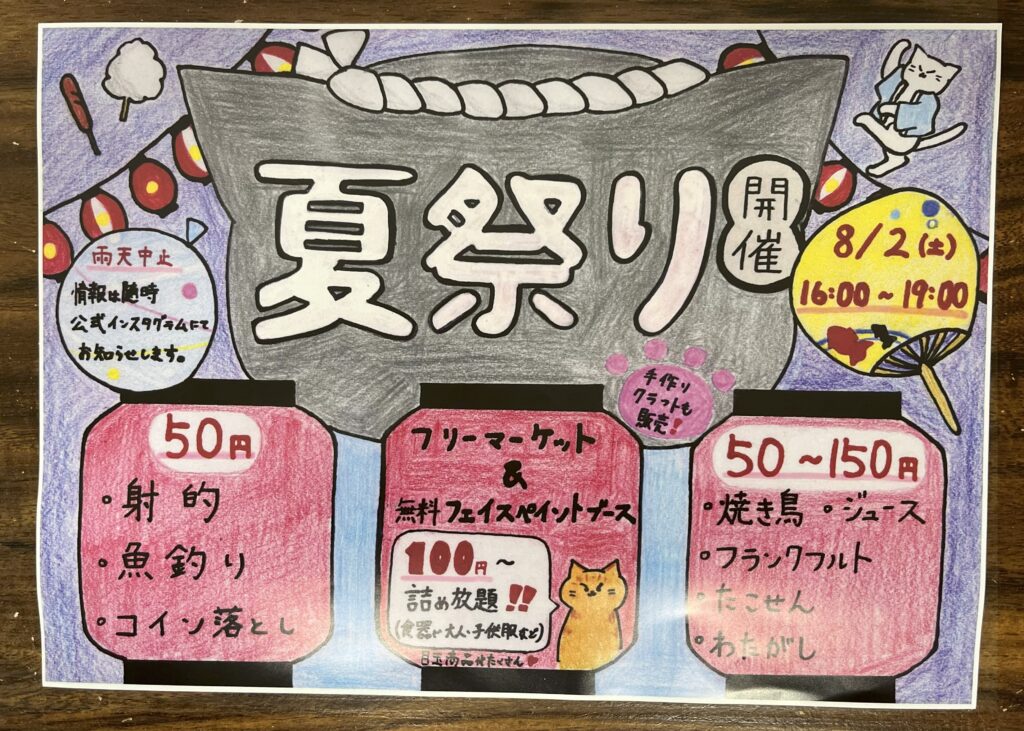 夏祭り
開催
8/2(土)
16:00~19:00
雨天中止
情報は随時
公式インスタグラムにて
お知らせします。
手作り
クラフトも
販売!
50円
・射的
・魚釣り
・コイン落とし
フリーマーケット
&
無料フェイスペイントブース
100円~
詰め放題!!
(食器や大人・子供服など)
目玉商品がたくさん♥
50~150円
・焼き鳥 ・ジュース
・フランクフルト
・たこせん
・わたがし